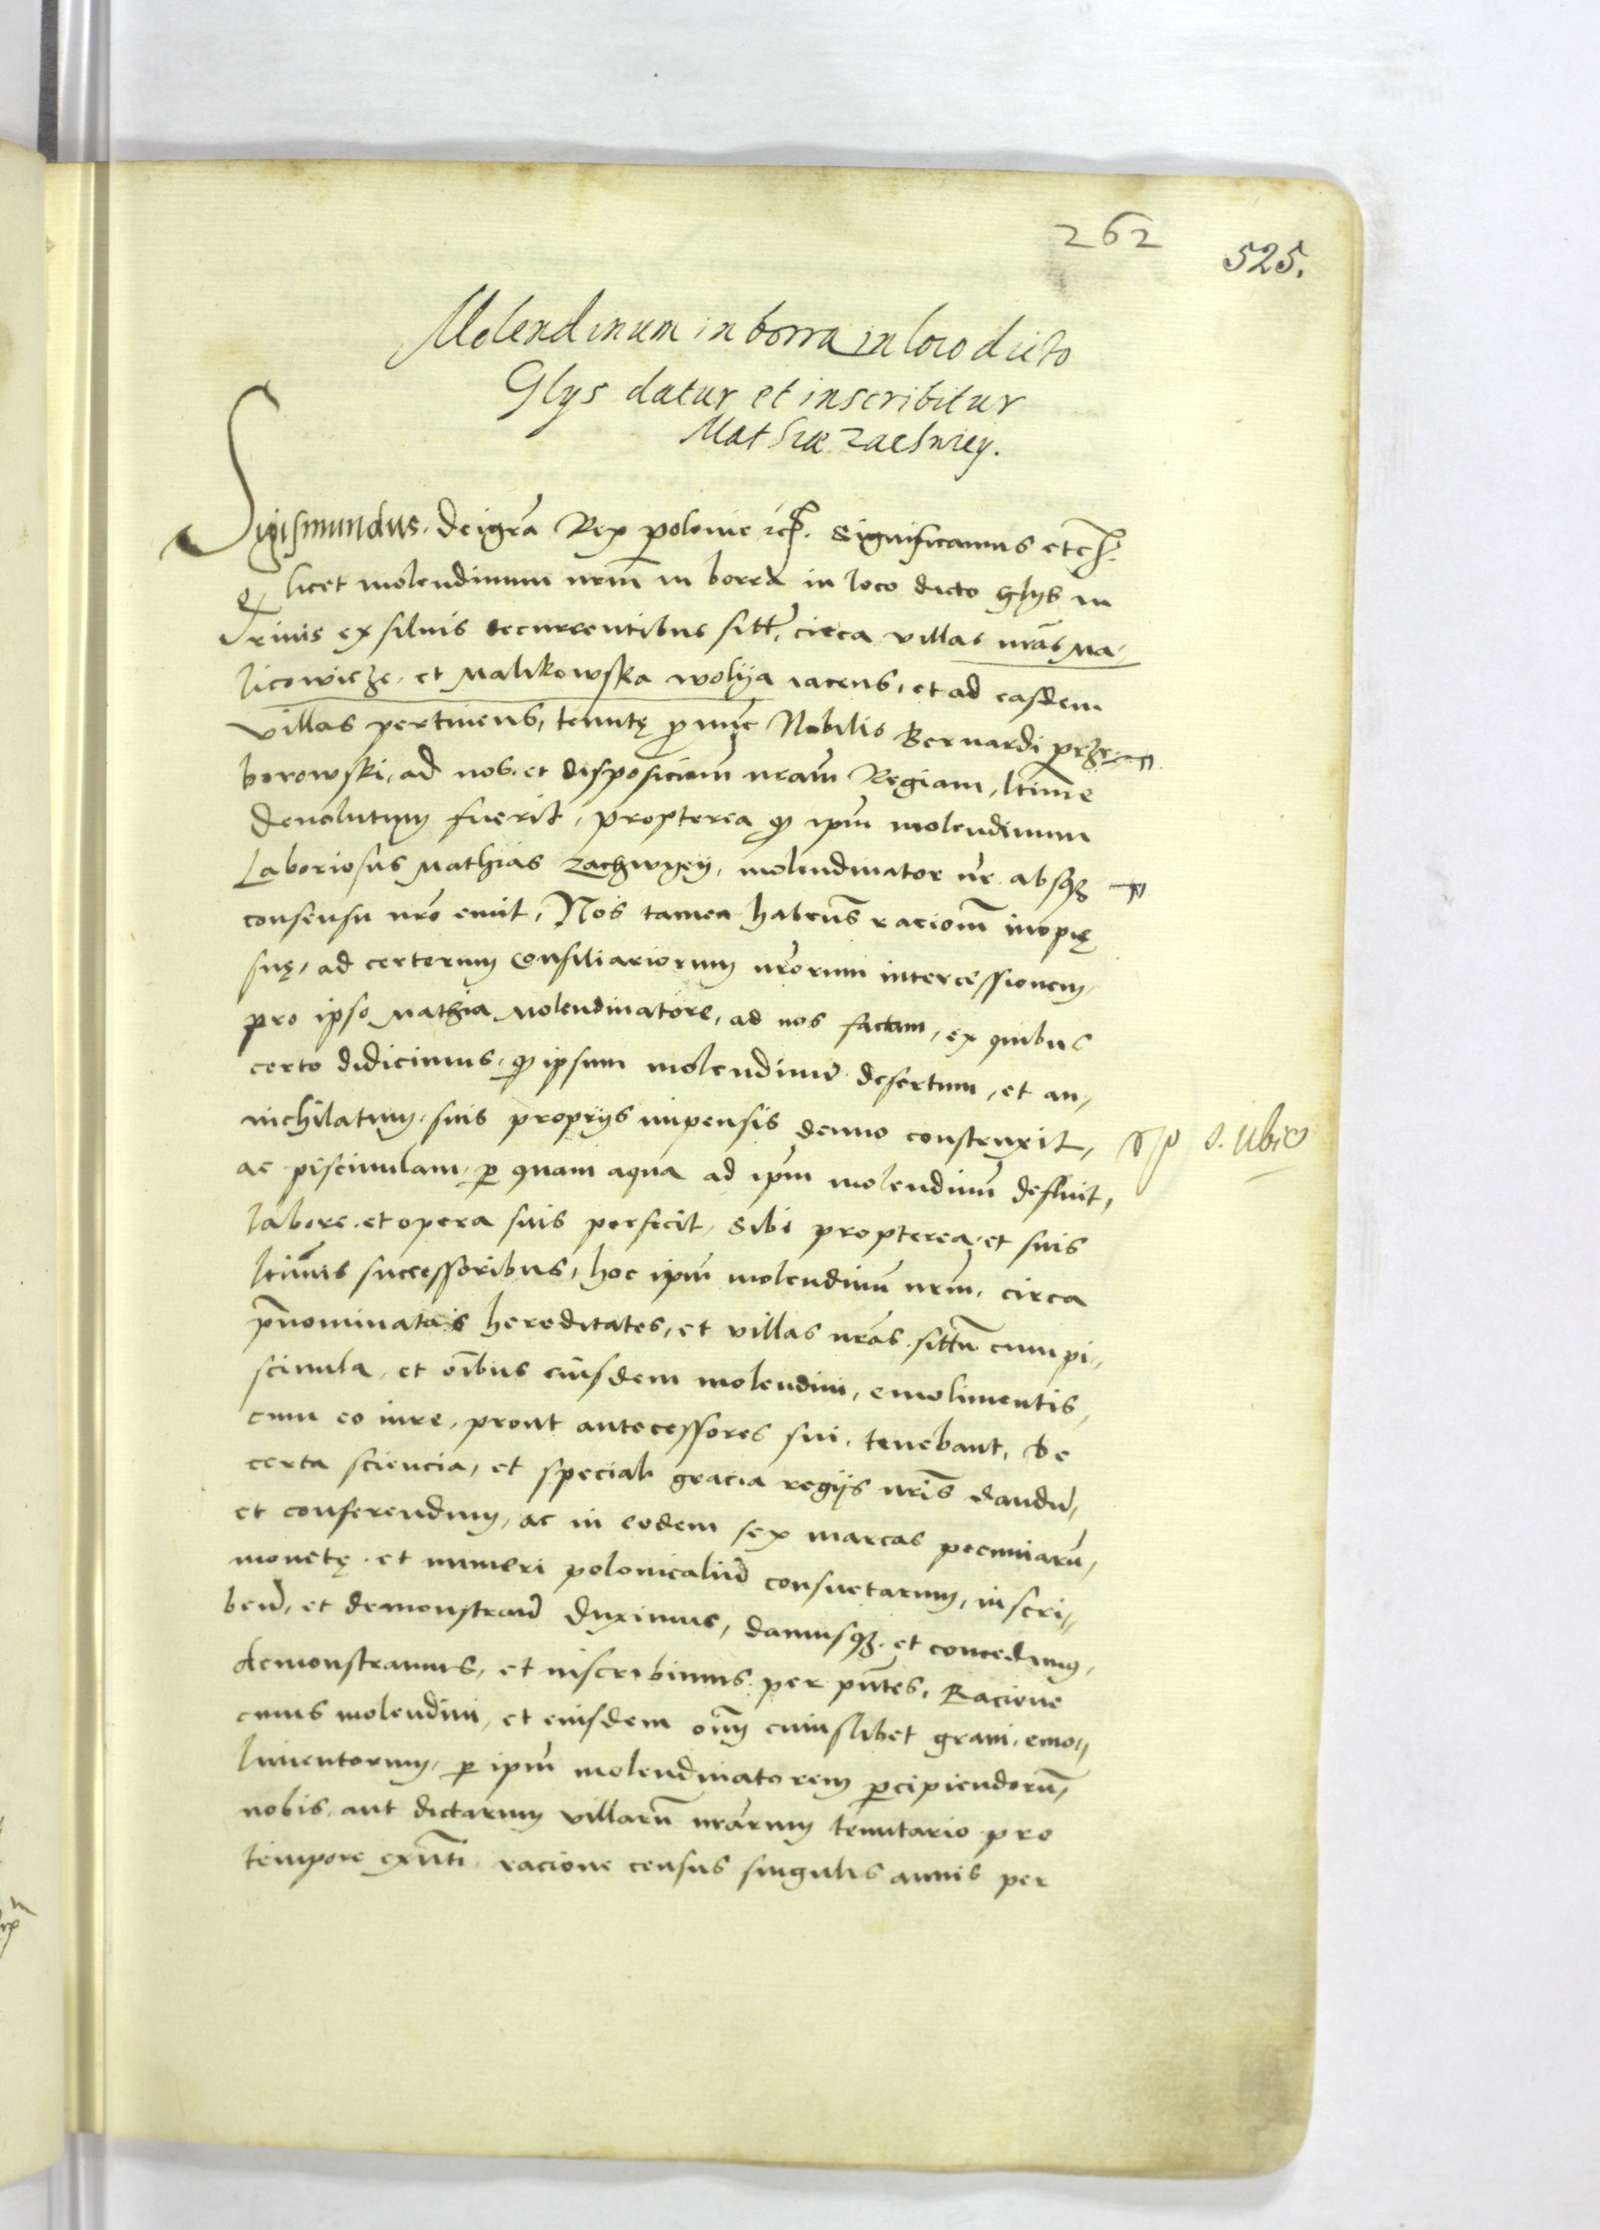 262
525.
Molendinum in borra in loco dicto
Glys datur et inscribitur
Mathiæ Zachwiey.
Sigismundus. dei grã Rex polonie etc. Significamus etc.
q licet molendinum nrm̃ in borra in loco dicto Glys in
rivis ex silvis decurrentibus sitt̃, circa villas nrãs Ma-
licowicze, et Malikowska wolya iacens, et ad easdem
villas pertinens, tenutę p nũc Nobilis Bernardi prze-
borowski, ad nos et disposiciom̃ nram̃ Regiam, ltime
devolutum fuerit, propterea q ipm̃ molendinum
Laboriosus Mathias Zachwyey, molendinator nr̃ absqꝫ
consensu nrõ emit, Nos tamen habens̃ racionm̃ inopię
suę, ad certorum Consiliariorum nrõrum intercessionem,
pro ipso Mathia Molendinatore, ad nos factam, ex quibus
certo didicimus, q ipsum molendinũ desertum, et an-
nichilatum, suis proprys impensis denuo construxit,
ac piscinulam, p quam aqua ad ipm̃ molendinũ defluit,
labore et opera suis perfecit, Sibi propterea, et suis
ltimis successoribus, hoc ipm̃ molendinũ nrm̃, circa
p̃nominatas hereditates, et villas nrãs sittm̃ cum pi-
scinula, et oĩbus eiusdem molendini, emolimentis,
cum eo iure, prout antecessores sui, tenebant, de
certa sciencia, et speciali gracia regys nrĩs dandũ,
et conferendum, ac in eodem sex marcas pecuniarũ,
monetę et numeri polonicaliũ consuetarum, inscri-
bend̃, et demonstrand̃ duximus, damusqꝫ et concedimus,
demonstramus, et inscribimus per pñtes, Racione
cuius molendini, et eiusdem oĩm cuiuslibet grani, emo-
limentorum, p ipm̃ molendinatorem pcipiendorũ,
nobis, aut dictarum villarũ nrãrum tenutario pro
tempore exñti, racione census singulis annis per